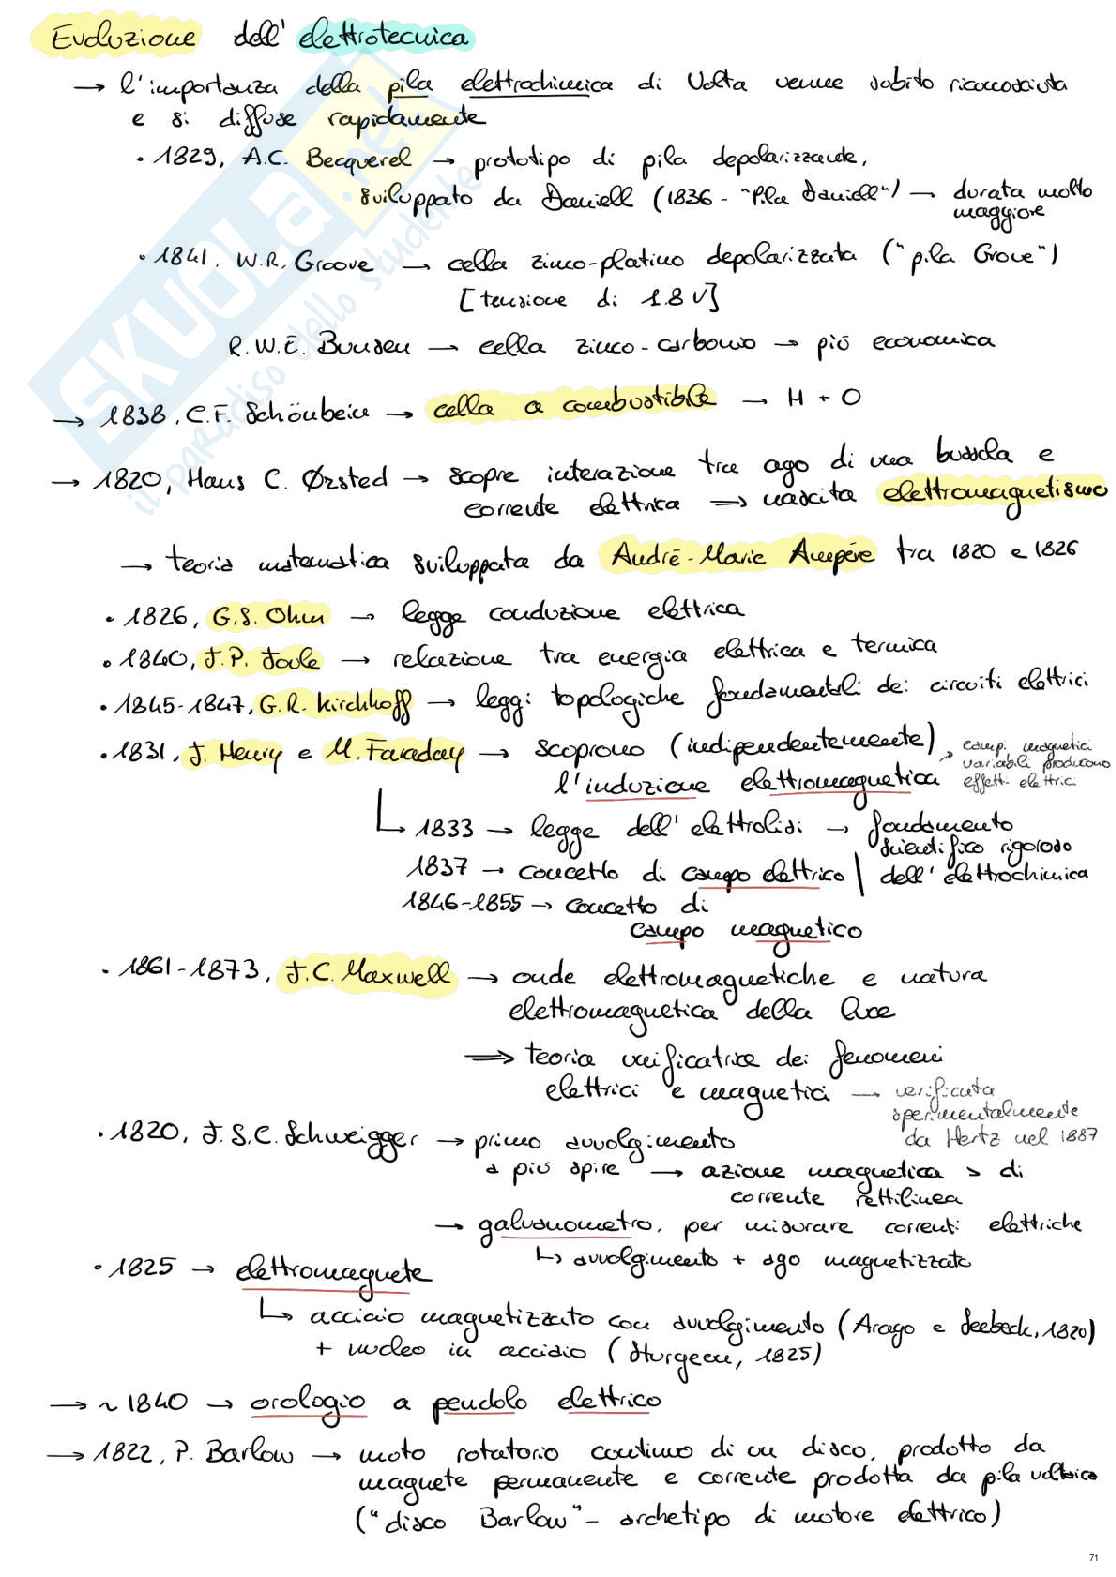 Evoluzione dell' elettrotecnica
→ l'importanza della pila elettrochimica di Volta venne subito riconosciuta
e si diffuse rapidamente
• 1829, A.C. Becquerel → prototipo di pila depolarizzante,
sviluppato da Daniell (1836 - "Pila Daniell") → durata molto
maggiore
• 1841, W.R. Groove → cella zinco-platino depolarizzata ("pila Grove")
[tensione di 1.8 V]
R.W.E. Bunsen → cella zinco-carbonio → più economica
→ 1838, C.F. Schönbein → cella a combustibile → H + O
→ 1820, Hans C. Ørsted → scopre interazione tra ago di una bussola e
corrente elettrica → nascita elettromagnetismo
→ teoria matematica sviluppata da André-Marie Ampére tra 1820 e 1826
• 1826, G.S. Ohm → legge conduzione elettrica
• 1840, J.P. Joule → relazione tra energia elettrica e termica
• 1845-1847, G.R. Kirchhoff → leggi topologiche fondamentali dei circuiti elettrici
• 1831, J. Henry e M. Faraday → scoprono (indipendentemente)
l'induzione elettromagnetica
→ campi magnetici
variabili producono
effetti elettrici
↳ 1833 → legge dell'elettrolisi → fondamento
scientifico rigoroso
dell'elettrochimica
1837 → concetto di campo elettrico
1846-1855 → concetto di
campo magnetico
• 1861-1873, J.C. Maxwell → onde elettromagnetiche e natura
elettromagnetica della luce
⇒ teoria unificatrice dei fenomeni
elettrici e magnetici → verificata
sperimentalmente
da Hertz nel 1887
• 1820, J.S.C. Schweigger → primo avvolgimento
a più spire → azione magnetica > di
corrente rettilinea
→ galvanometro, per misurare correnti elettriche
↳ avvolgimento + ago magnetizzato
• 1825 → elettromagnete
↳ acciaio magnetizzato con avvolgimento (Arago e Seebeck, 1820)
+ nucleo in acciaio (Sturgeon, 1825)
→ ~ 1840 → orologio a pendolo elettrico
→ 1822, P. Barlow → moto rotatorio continuo di un disco, prodotto da
magnete permanente e corrente prodotta da pila voltaica
("disco Barlow" - archetipo di motore elettrico)
SKUOLA.net
il paradiso dello studente
71